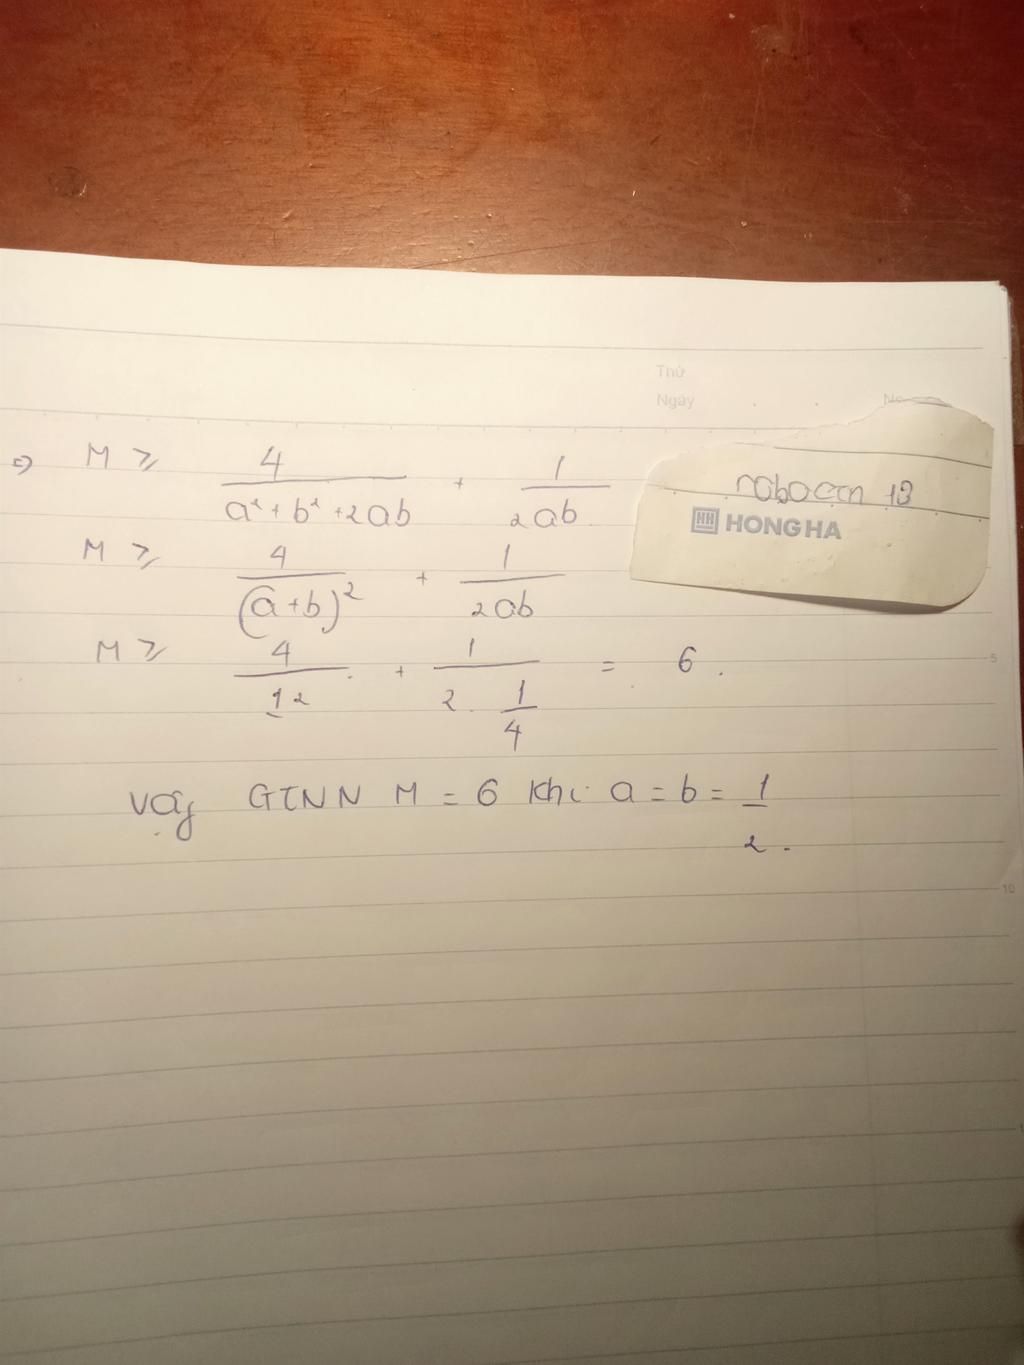 Thứ
Ngày No
=> M ≥ 4/(a² + b² + 2ab) + 1/2ab
robocon 13
HH HONG HA
M ≥ 4/(a+b)² + 1/2ab
M ≥ 4/1² + 1/(2 . 1/4) = 6 .
5
Vậy GTNN M = 6 khi a = b = 1/2 .
10